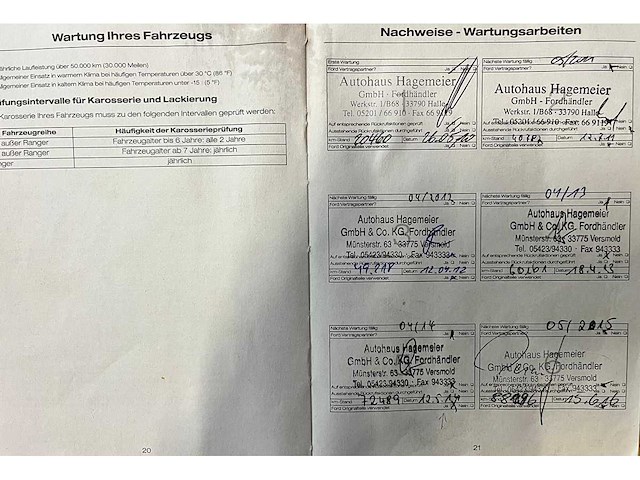 Wartung Ihres Fahrzeugs
ährliche Laufleistung über 50.000 km (30.000 Meilen)
llgemeiner Einsatz in warmem Klima bei häufigen Temperaturen über 30 °C (86 °F)
llgemeiner Einsatz in kaltem Klima bei häufigen Temperaturen unter -15 (5 °F)
üfungsintervalle für Karosserie und Lackierung
Karosserie Ihres Fahrzeugs muss zu den folgenden Intervallen geprüft werden:
Fahrzeugreihe Häufigkeit der Karosserieprüfung
außer Ranger Fahrzeugalter bis 6 Jahre: alle 2 Jahre
außer Ranger Fahrzeugalter ab 7 Jahre: jährlich
nger jährlich
20
Nachweise - Wartungsarbeiten
Erste Wartung
Ford Vertragspartner? Ja Nein
Autohaus Hagemeier
GmbH - Fordhändler
Werkstr. 1/B68 - 33790 Halle
Tel. 05201 / 66 910 - Fax 66
Ausstehende Rückrufaktionen durchgeführt Ja Nein
km-Stand 20460 Datum 26.05.10
Ford Originalteile verwendet Ja Nein
Nächste Wartung fällig 05/2011
Ford Vertragspartner? Ja Nein
Autohaus Hagemeier
GmbH - Fordhändler
Werkstr. 1/B68 - 33790 Halle
Tel. 05201 / 66 910 - Fax 66 91
km-Stand Datum
Ford Originalteile verwendet Ja Nein
Nächste Wartung fällig 04/2013
Ford Vertragspartner? Ja Nein
Autohaus Hagemeier
GmbH & Co. KG, Fordhändler
Münsterstr. 63 33775 Versmold
Tel. 05423/94330 - Fax 943333
Ausstehende Rückrufaktionen durchgeführt Ja Nein
km-Stand Datum 12.04.12
Ford Originalteile verwendet Ja Nein
Nächste Wartung fällig 04/13
Ford Vertragspartner? Ja Nein
Autohaus Hagemeier
GmbH & Co. KG Fordhändler
Münsterstr. 63 33775 Versmold
Tel. 05423/94330 - Fax 943333
Ausstehende Rückrufaktionen durchgeführt Ja Nein
km-Stand 60261 Datum 18.4.13
Ford Originalteile verwendet Ja Nein
Nächste Wartung fällig 04/14
Ford Vertragspartner? Ja Nein
Autohaus Hagemeier
GmbH & Co. KG, Fordhändler
Münsterstr. 63 33775 Versmold
Tel. 05423/94330 - Fax 943333
km-Stand 72489 Datum 12.5.14
Ford Originalteile verwendet Ja Nein
Nächste Wartung fällig 05/2015
Ford Vertragspartner? Ja Nein
Autohaus Hagemeier
GmbH & Co. KG Fordhändler
Münsterstr. 63 - 33775 Versmold
Tel. 05423/94330 - Fax 943333
km-Stand Datum
Ford Originalteile verwendet Ja Nein
21